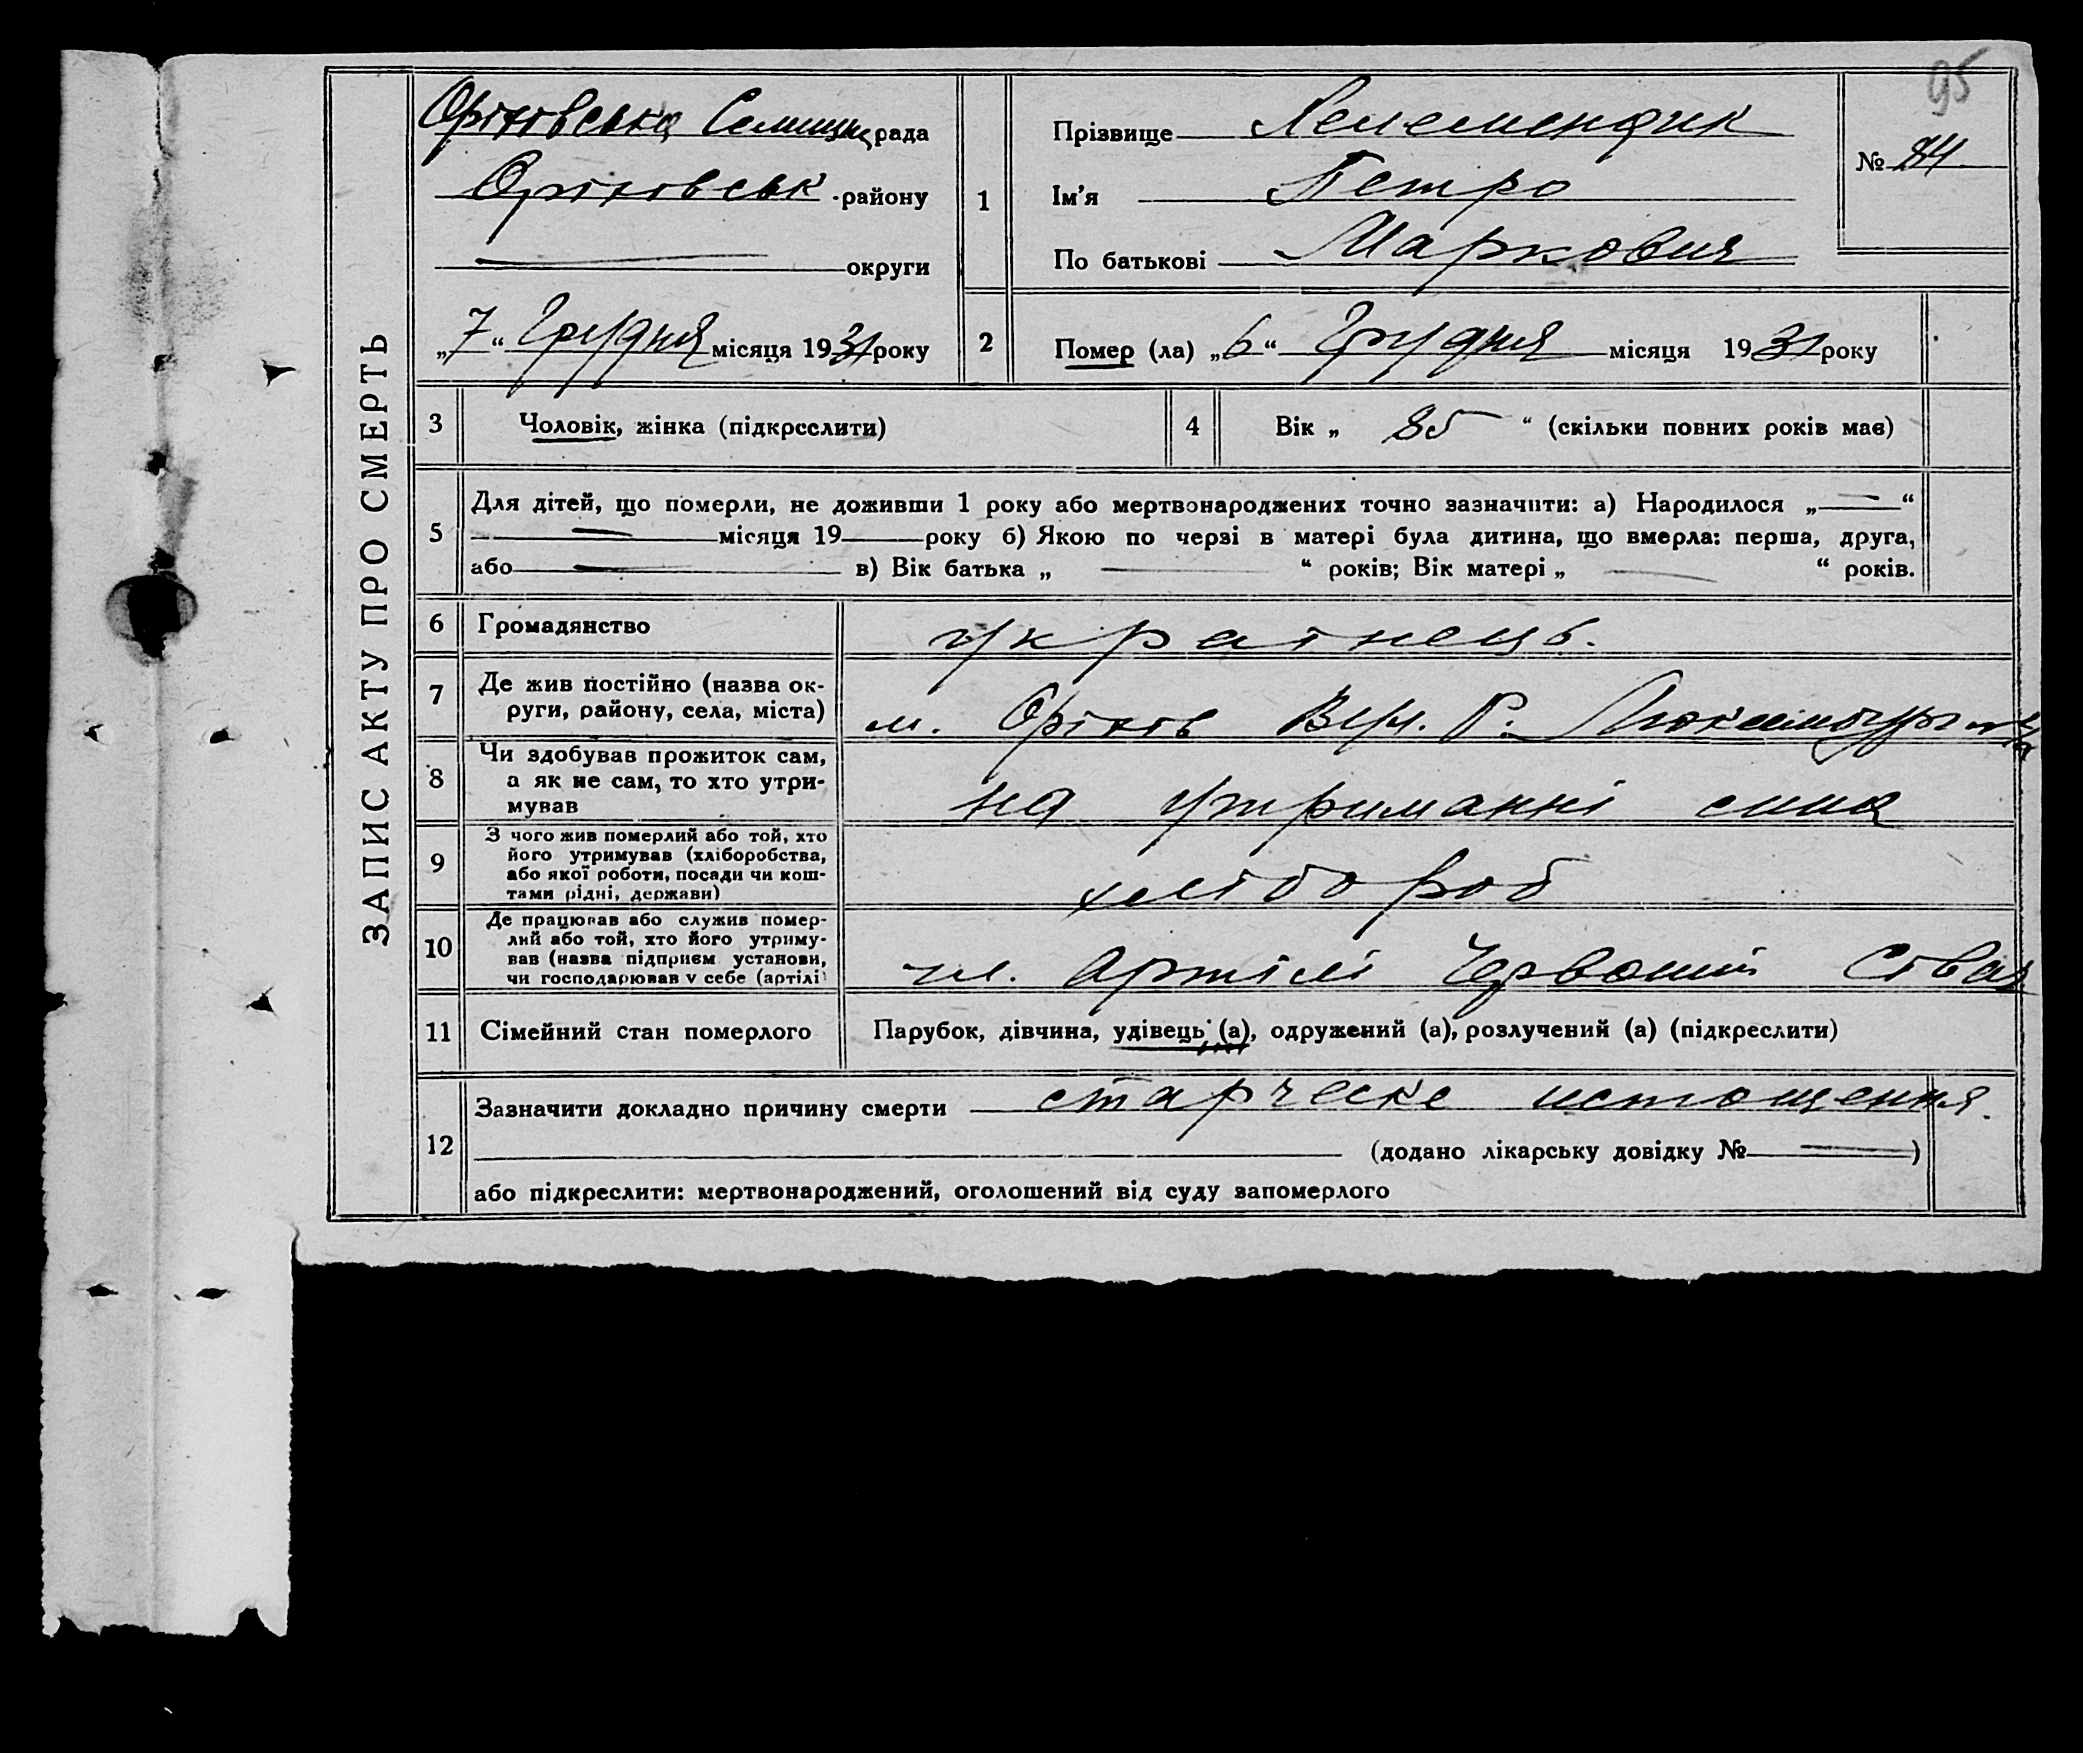 95
ЗАПИС АКТУ ПРО СМЕРТЬ
Оріхівська Селищна рада
Оріхівськ району
округи
„7“ Грудня місяця 1931 року
1
Прізвище
Ім’я Петро
По батькові Маркович
№ 84
2
Помер (ла) „6“ Грудня місяця 1931 року
3 Чоловік, жінка (підкреслити)
4 Вік „ 85 “ (скільки повних років мав)
5
Для дітей, що померли, не доживши 1 року або мертвонароджених точно зазначити: а) Народилося „—“
— місяця 19 року б) Якою по черзі в матері була дитина, що вмерла: перша, друга,
або — в) Вік батька „ — “ років; Вік матері „ — “ років.
6 Громадянство українець.
7 Де жив постійно (назва ок-
руги, району, села, міста)
м. Оріхів Вул. Р. Люксембург
8 Чи здобував прожиток сам,
а як не сам, то хто утри-
мував
на утриманні сина
9 З чого жив померлий або той, хто
його утримував (хліборобства,
або якої роботи, посади чи кош-
тами рідні, держави)
хлібороб
10 Де працював або служив помер-
лий або той, хто його утриму-
вав (назва підприєм установи,
чи господарював у себе (артілі)
чл. Артілі Червоний
11 Сімейний стан померлого
Парубок, дівчина, удівець (а), одружений (а), розлучений (а) (підкреслити)
12
Зазначити докладно причину смерти старческе истощення.
(додано лікарську довідку № —)
або підкреслити: мертвонароджений, оголошений від суду запомерлого